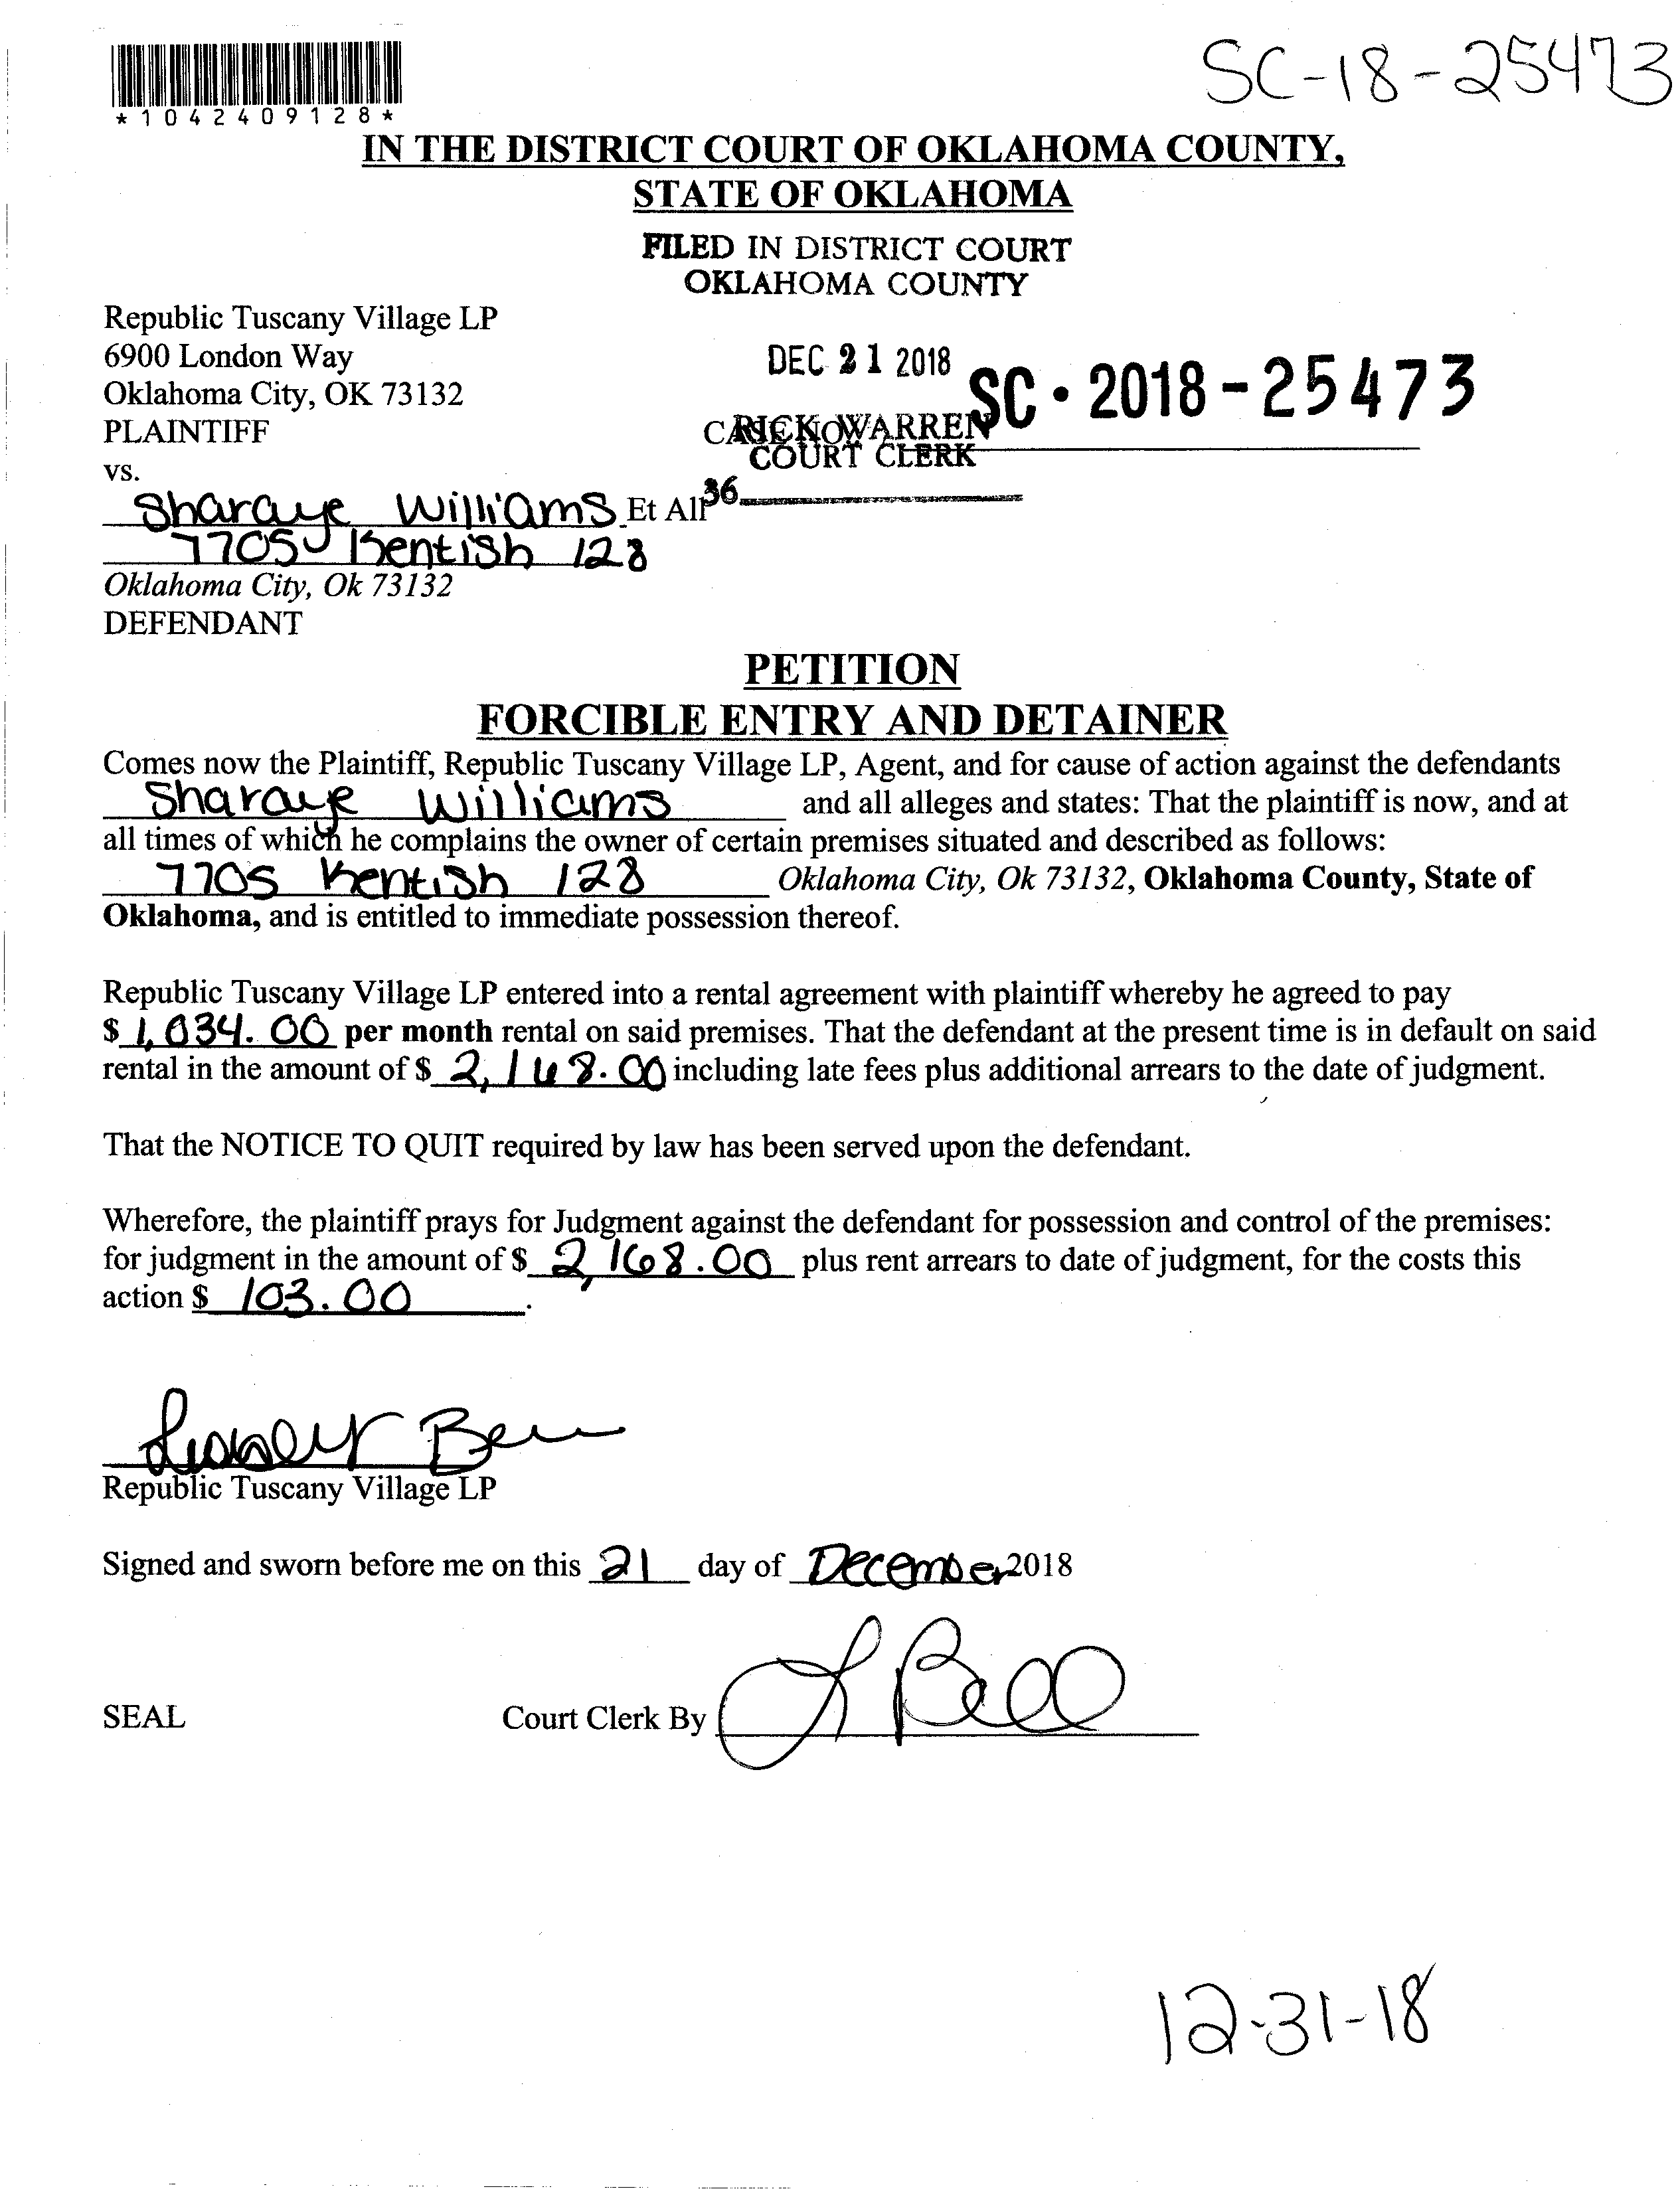 SC-18-25473
*1042409128*
IN THE DISTRICT COURT OF OKLAHOMA COUNTY,
STATE OF OKLAHOMA
FILED IN DISTRICT COURT
OKLAHOMA COUNTY
Republic Tuscany Village LP
6900 London Way
Oklahoma City, OK 73132
PLAINTIFF
DEC 21 2018
SC · 2018-25473
CASE NO
RICK WARREN
COURT CLERK
36
vs.
Sharaye Williams Et All
7705 Kentish 128
Oklahoma City, Ok 73132
DEFENDANT
PETITION
FORCIBLE ENTRY AND DETAINER
Comes now the Plaintiff, Republic Tuscany Village LP, Agent, and for cause of action against the defendants
Sharaye Williams and all alleges and states: That the plaintiff is now, and at
all times of which he complains the owner of certain premises situated and described as follows:
7705 Kentish 128 Oklahoma City, Ok 73132, Oklahoma County, State of
Oklahoma, and is entitled to immediate possession thereof.
Republic Tuscany Village LP entered into a rental agreement with plaintiff whereby he agreed to pay
$ 1,034.00 per month rental on said premises. That the defendant at the present time is in default on said
rental in the amount of $ 2,168.00 including late fees plus additional arrears to the date of judgment.
That the NOTICE TO QUIT required by law has been served upon the defendant.
Wherefore, the plaintiff prays for Judgment against the defendant for possession and control of the premises:
for judgment in the amount of $ 2,168.00 plus rent arrears to date of judgment, for the costs this
action $ 103.00 .
Republic Tuscany Village LP
Signed and sworn before me on this 21 day of December 2018
SEAL
Court Clerk By L Bell
12-31-18